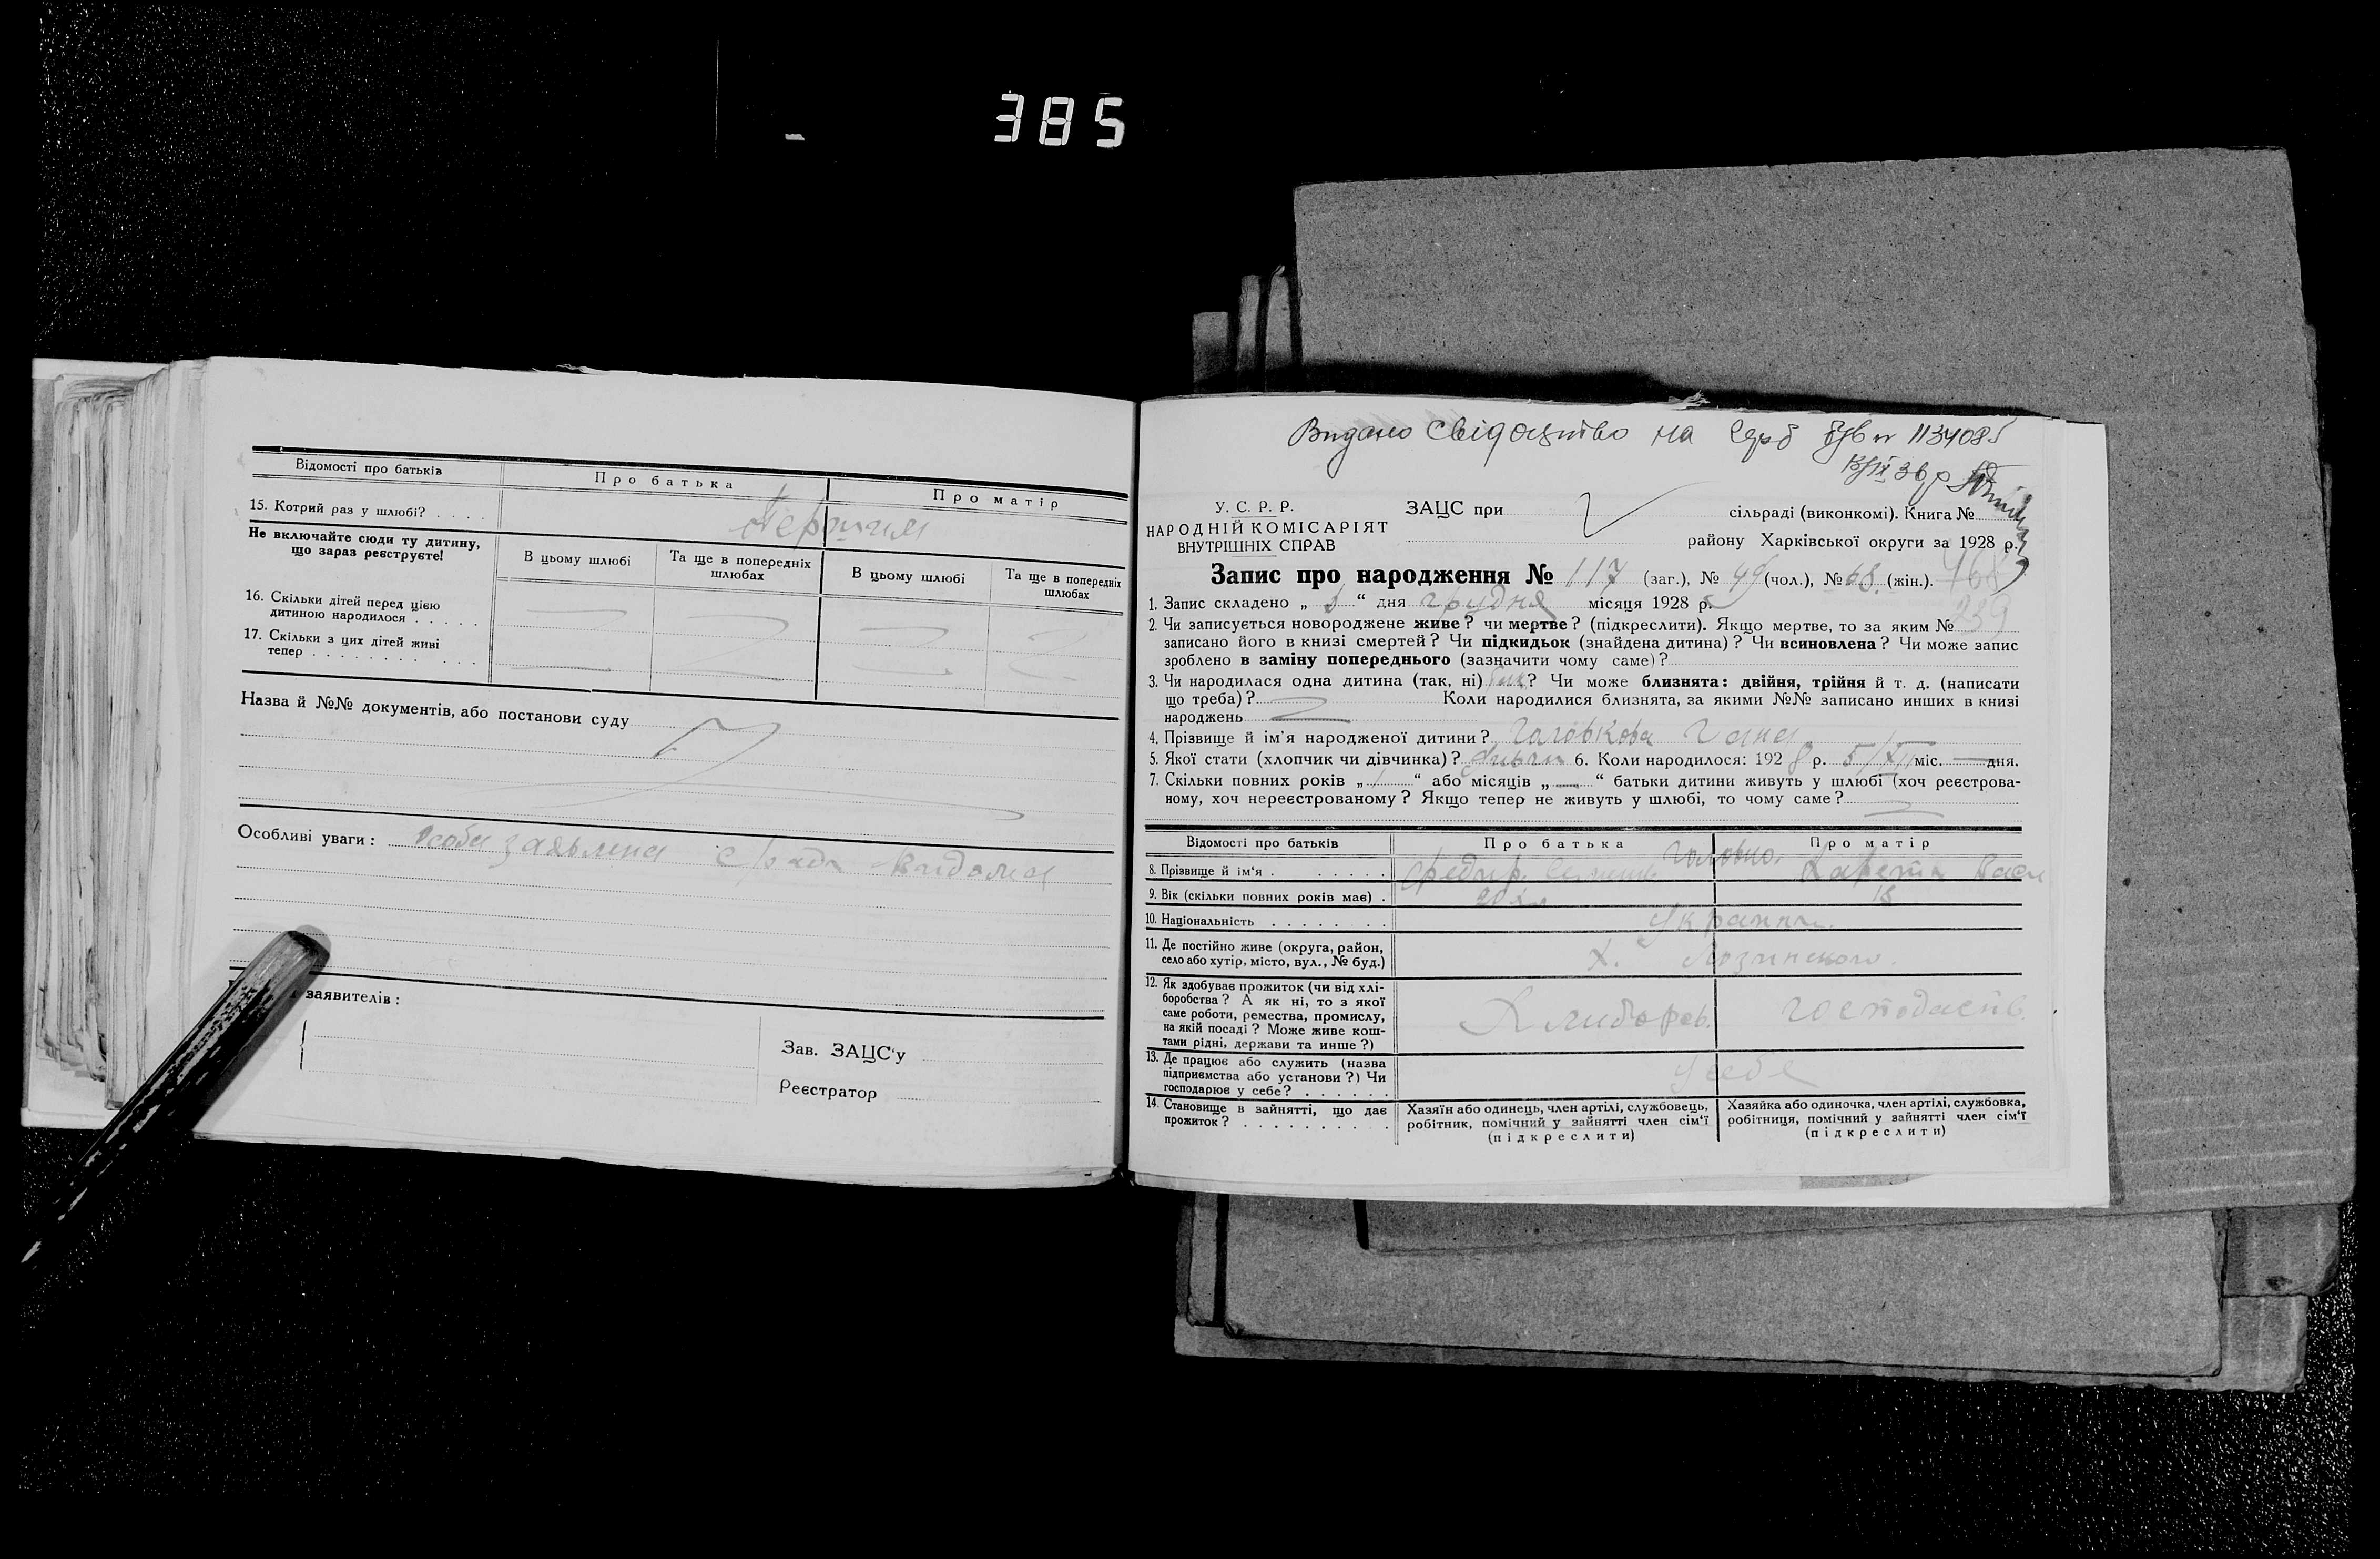 385
Відомості про батьків
Про батька
Про матір
15. Котрий раз у шлюбі? . . . .
Не включайте сюди ту дитину,
що зараз реєструєте!
В цьому шлюбі
Та ще в попередніх
шлюбах
В цьому шлюбі
Та ще в попередніх
шлюбах
16. Скільки дітей перед цією
дитиною народилося . . . . .
17. Скільки з цих дітей живі
тепер . . . . . . . . . . .
Назва й №№ документів, або постанови суду
Особливі уваги: особа заявлена
заявителів:
Зав. ЗАЦС'у
Реєстратор
Видано свідоцтво на
У. С. Р. Р.
НАРОДНІЙ КОМІСАРІЯТ
ВНУТРІШНІХ СПРАВ
ЗАЦС при
сільраді (виконкомі). Книга №
району Харківської округи за 1928 р.
Запис про народження № 117 (заг.), № 49 (чол.), № 68 (жін.).
239
1. Запис складено „ “ дня грудня місяця 1928 р.
2. Чи записується новороджене живе? чи мертве? (підкреслити). Якщо мертве, то за яким №
записано його в книзі смертей? Чи підкидьок (знайдена дитина)? Чи всиновлена? Чи може запис
зроблено в заміну попереднього (зазначити чому саме)?
3. Чи народилася одна дитина (так, ні) так? Чи може близнята: двійня, трійня й т. д. (написати
що треба)? Коли народилися близнята, за якими №№ записано инших в книзі
народжень
4. Прізвище й ім'я народженої дитини? Головкова Гана
5. Якої стати (хлопчик чи дівчинка)? 6. Коли народилося: 1928 р. 5/XII міс. — дня.
7. Скільки повних років „1“ або місяців „—“ батьки дитини живуть у шлюбі (хоч реєстрова-
ному, хоч нереєстрованому? Якщо тепер не живуть у шлюбі, то чому саме?
Відомості про батьків
Про батька
Про матір
8. Прізвище й ім'я . . . . . .
9. Вік (скільки повних років має) . 20 18
10. Національність . . . . . . .
11. Де постійно живе (округа, район,
село або хутір, місто, вул., № буд.)
Х. Лозинського.
12. Як здобуває прожиток (чи від хлі-
боробства? А як ні, то з якої
саме роботи, ремества, промислу,
на якій посаді? Може живе кош-
тами рідні, держави та инше?)
13. Де працює або служить (назва
підприємства або установи?) Чи
господарює у себе? . . . . . .
У себе
14. Становище в зайнятті, що дає
прожиток? . . . . . . . . . .
Хазяїн або одинець, член артілі, службовець,
робітник, помічний у зайнятті член сім'ї
(підкреслити)
Хазяйка або одиночка, член артілі, службовка,
робітниця, помічний у зайнятті член сім'ї
(підкреслити)